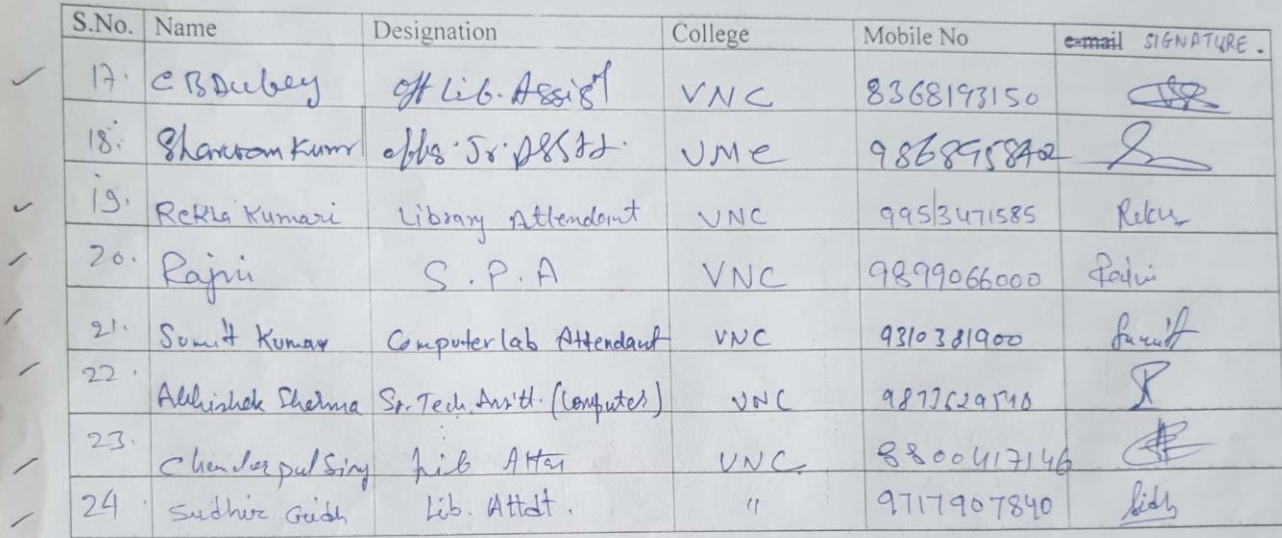 S.No. Name Designation College Mobile No e-mail SIGNATURE.
17. C B Dubey Off Lib. Assist VNC 8368193150
18. Kumr Sr. Asstt. 9868958402
19. Rekha Kumari Library Attendant VNC 9953471585
20. Rajni S.P.A VNC 9899066000 Rajni
21. Sumit Kumar Computer lab Attendant VNC 9310381900 Sumit
22. Abhishek Sharma Sr. Tech. Asstt. (Computer) VNC
23. Chander pal Sing Lib VNC. 8800417146
24 Sudhir Lib. Attdt. " 9717907840